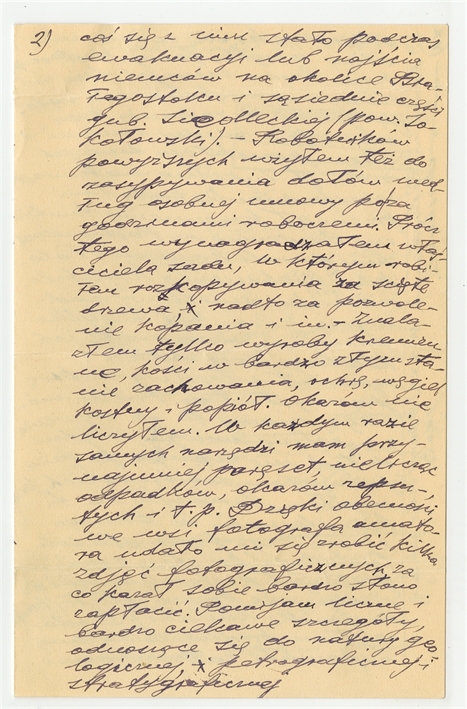 2)
coś się z nim stało podczas
ewakuacji lub najścia
niemców na okolice Bia-
łegostoku i sąsiednie części
gub. Siedleckiej (pow. So-
kołowski). – Robotników
powyższych użyłem też do
zasypywania dołów wed-
ług osobnej umowy poza
godzinami roboczemi. Prócz
tego wynagradzałem właś-
ciciela sadu, w którym robi-
łem rozkopywania za ścięte
drzewa, i nadto za pozwole-
nie kopania i in. – Znala-
złem tylko wyroby krzemien-
ne, kości w bardzo złym sta-
nie zachowania, ochrę, węgiel
kostny i popiół. Okazów nie
liczyłem. W każdym razie
samych narzędzi mam przy-
najmniej paręset nie licząc
odpadków, okazów zepsu-
tych i t. p. Dzięki obecności
we wsi fotografa amato-
ra udało mi się zrobić kilka
zdjęć fotograficznych, za
co kazał sobie bardzo słono
zapłacić. Pomijam liczne i
bardzo ciekawe szczegóły,
odnoszące się do natury geo-
logicznej, petrograficznej i
stratygraficznej